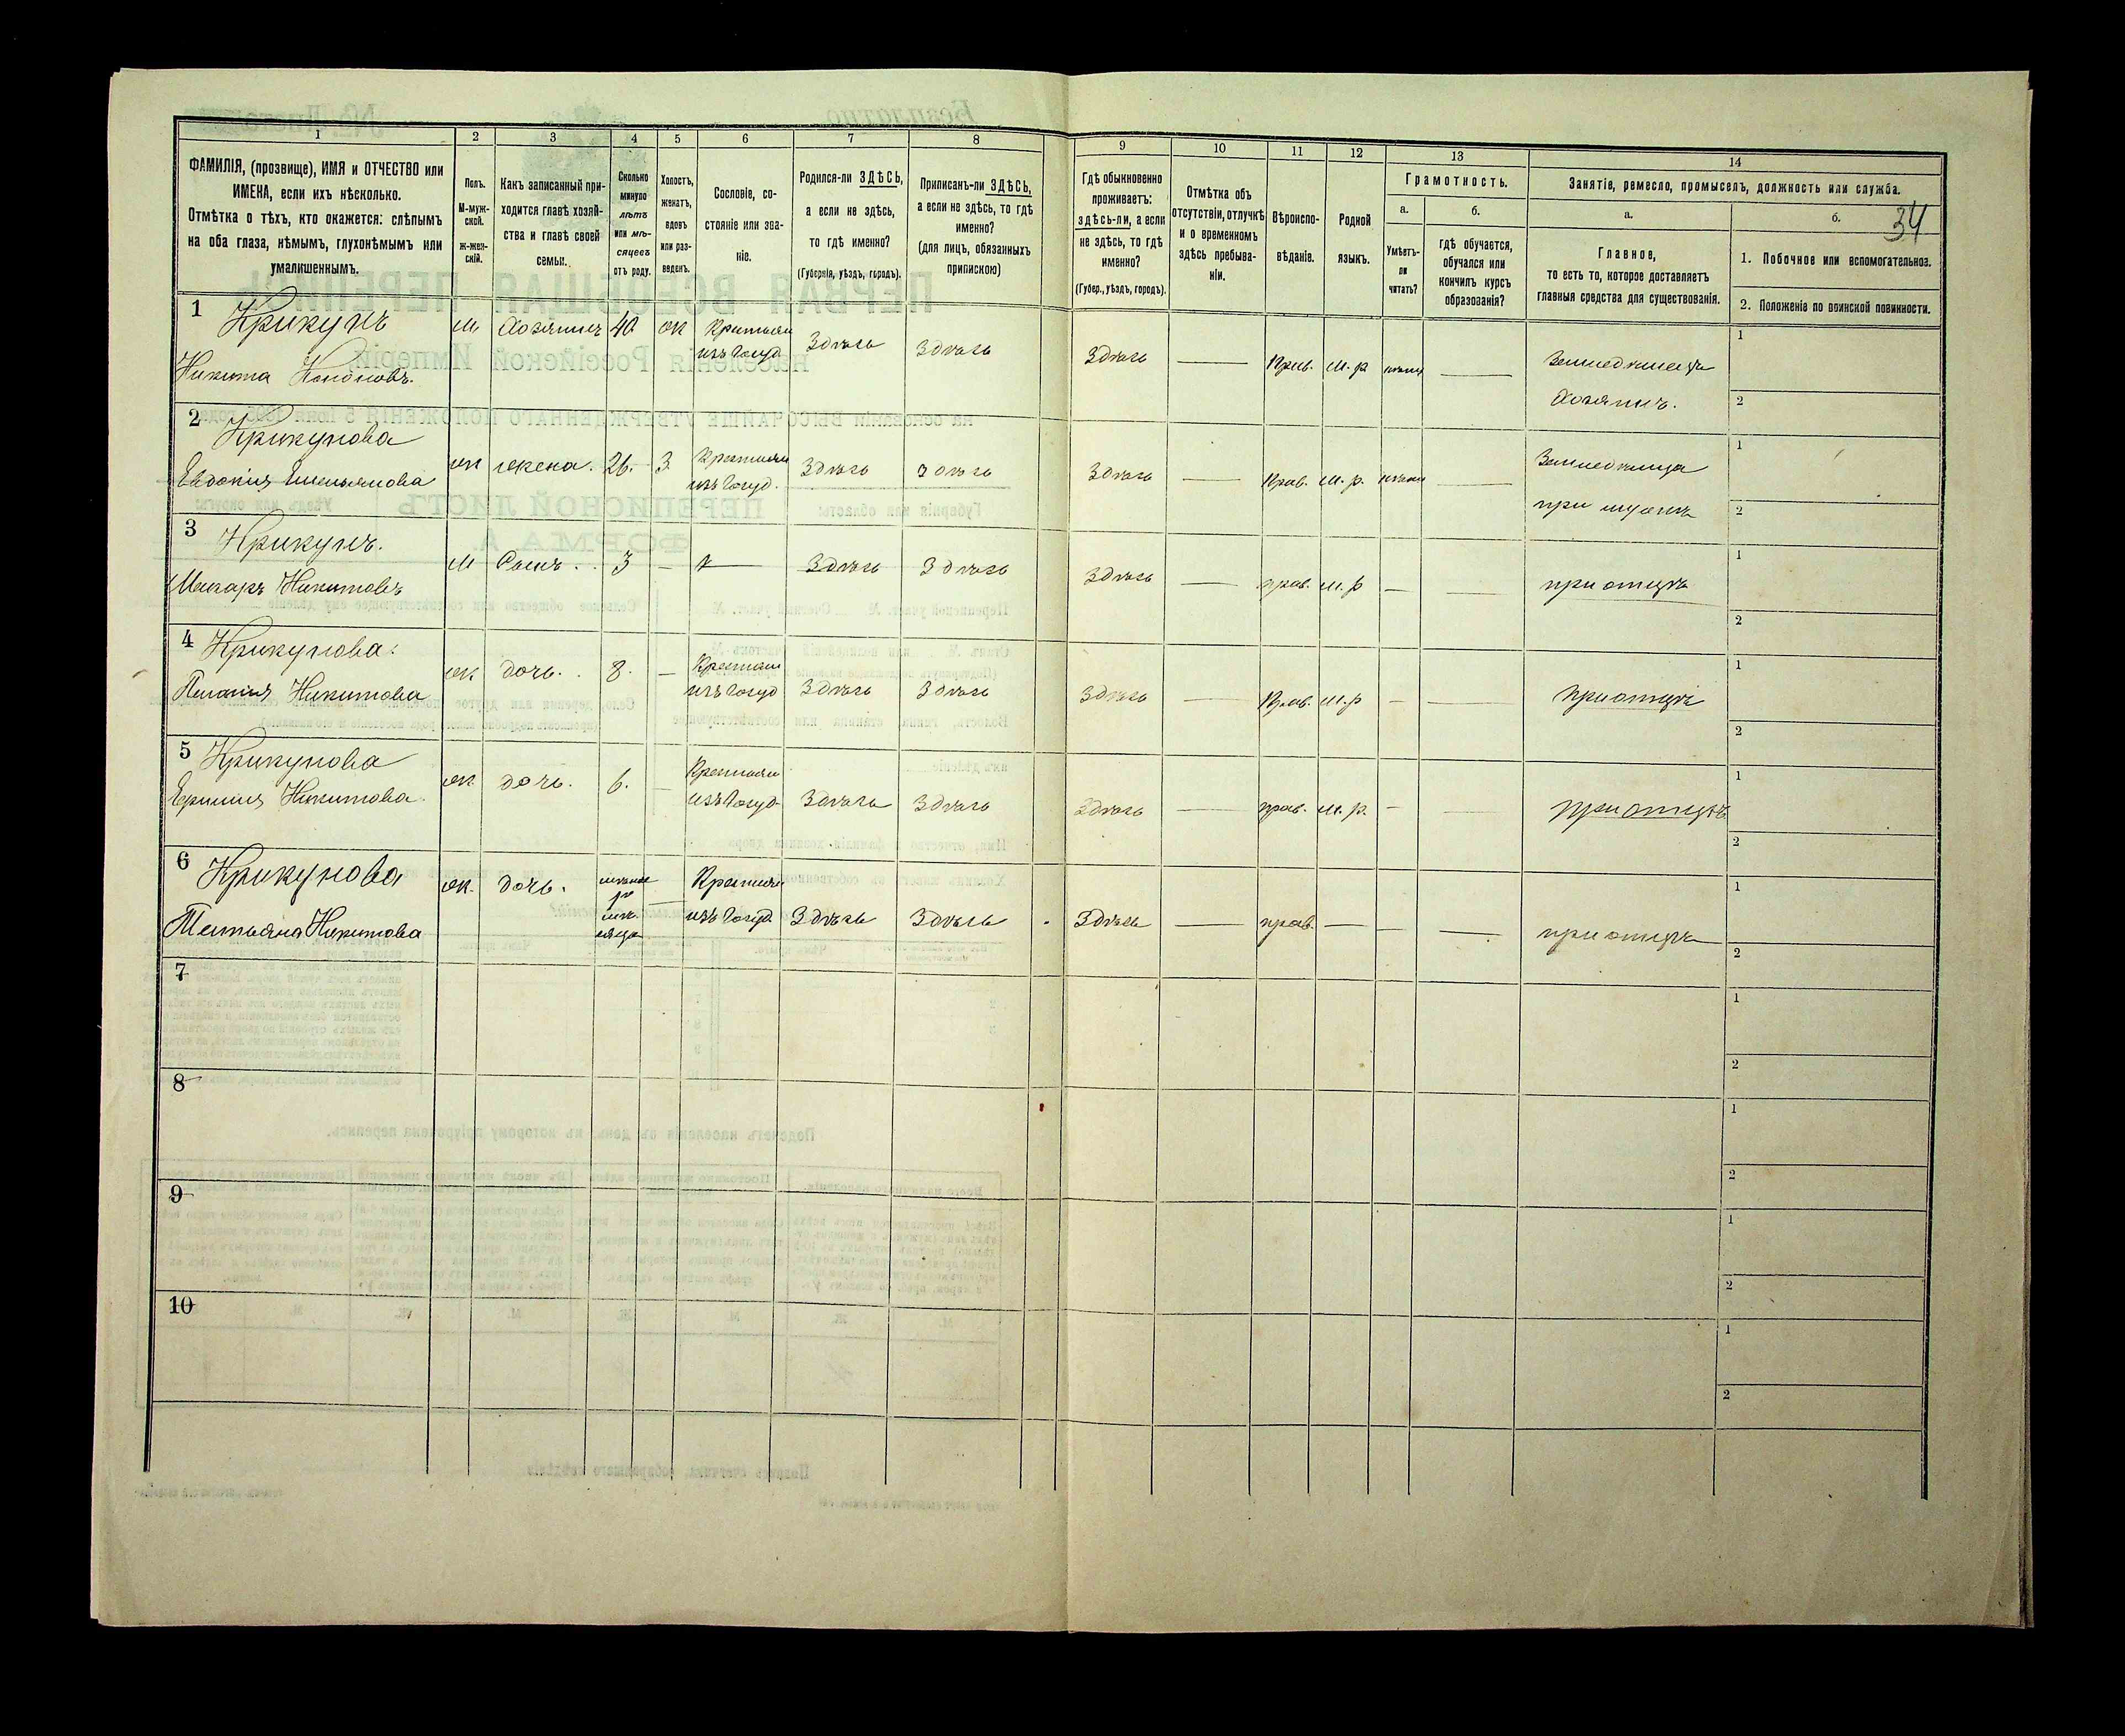 34
1 2 3 4 5 6 7 8 9 10 11 12 13 14
ФАМИЛІЯ, (прозвище), ИМЯ и ОТЧЕСТВО или
ИМЕНА, если ихъ нѣсколько.
Отмѣтка о тѣхъ, кто окажется: слѣпымъ
на оба глаза, нѣмымъ, глухонѣмымъ или
умалишеннымъ.
Полъ.
М-муж-
ской.
ж-жен-
скій.
Какъ записанный при-
ходится главѣ хозяй-
ства и главѣ своей
семьи.
Сколько
минуло
лѣтъ
или мѣ-
сяцевъ
отъ роду.
Холостъ,
женатъ,
вдовъ
или раз-
веденъ.
Сословіе, со-
стояніе или зва-
ніе.
Родился-ли ЗДѢСЬ,
а если не здѣсь,
то гдѣ именно?
(Губернія, уѣздъ, городъ).
Приписанъ-ли ЗДѢСЬ,
а если не здѣсь, то гдѣ
именно?
(для лицъ, обязанныхъ
припискою)
Гдѣ обыкновенно
проживаетъ:
здѣсь-ли, а если
не здѣсь, то гдѣ
именно?
(Губер., уѣздъ, городъ).
Отмѣтка объ
отсутствіи, отлучкѣ
и о временномъ
здѣсь пребыва-
ніи.
Вѣроиспо-
вѣданіе.
Родной
языкъ.
Грамотность.
а.
Умѣетъ-
ли
читать?
б.
гдѣ обучается,
обучался или
кончилъ курсъ
образованія?
Занятіе, ремесло, промыселъ, должность или служба.
а.
Главное,
то есть то, которое доставляетъ
главныя средства для существованія.
б.
1. Побочное или вспомогательное.
2. Положеніе по воинской повинности.
1 Крикунъ м Хозяинъ 40 ж Крестьян Здѣсь Здѣсь Здѣсь — Прав. м.р. — 1
Никита изъ Госуд. Хозяинъ. 2
2 Крикунова ж жена. 26. З. Крестьян Здѣсь Здѣсь Здѣсь — Прав. м.р. — 1
Евдокія Емельянова изъ Госуд. при мужѣ 2
3 Крикунъ. м Сынъ. 3 — Здѣсь Здѣсь Здѣсь — прав. м.р — — при отцѣ 1
Макаръ Никитовъ 2
4 Крикунова. ж дочь. 8. — Крестьян Здѣсь Здѣсь Здѣсь — Прав. м.р — — При отцѣ 1
Никитова изъ Госуд 2
5 Крикунова ж дочь. 6. — Крестьян Здѣсь Здѣсь Здѣсь — прав. м.р. — — при отцѣ 1
Никитова изъ Госуд 2
6 Крикунова ж. дочь. — Крестьян Здѣсь Здѣсь Здѣсь — прав. — — — при отцѣ 1
Татьяна Никитова изъ Госуд 2
7 1
2
8 1
2
9 1
2
10 1
2